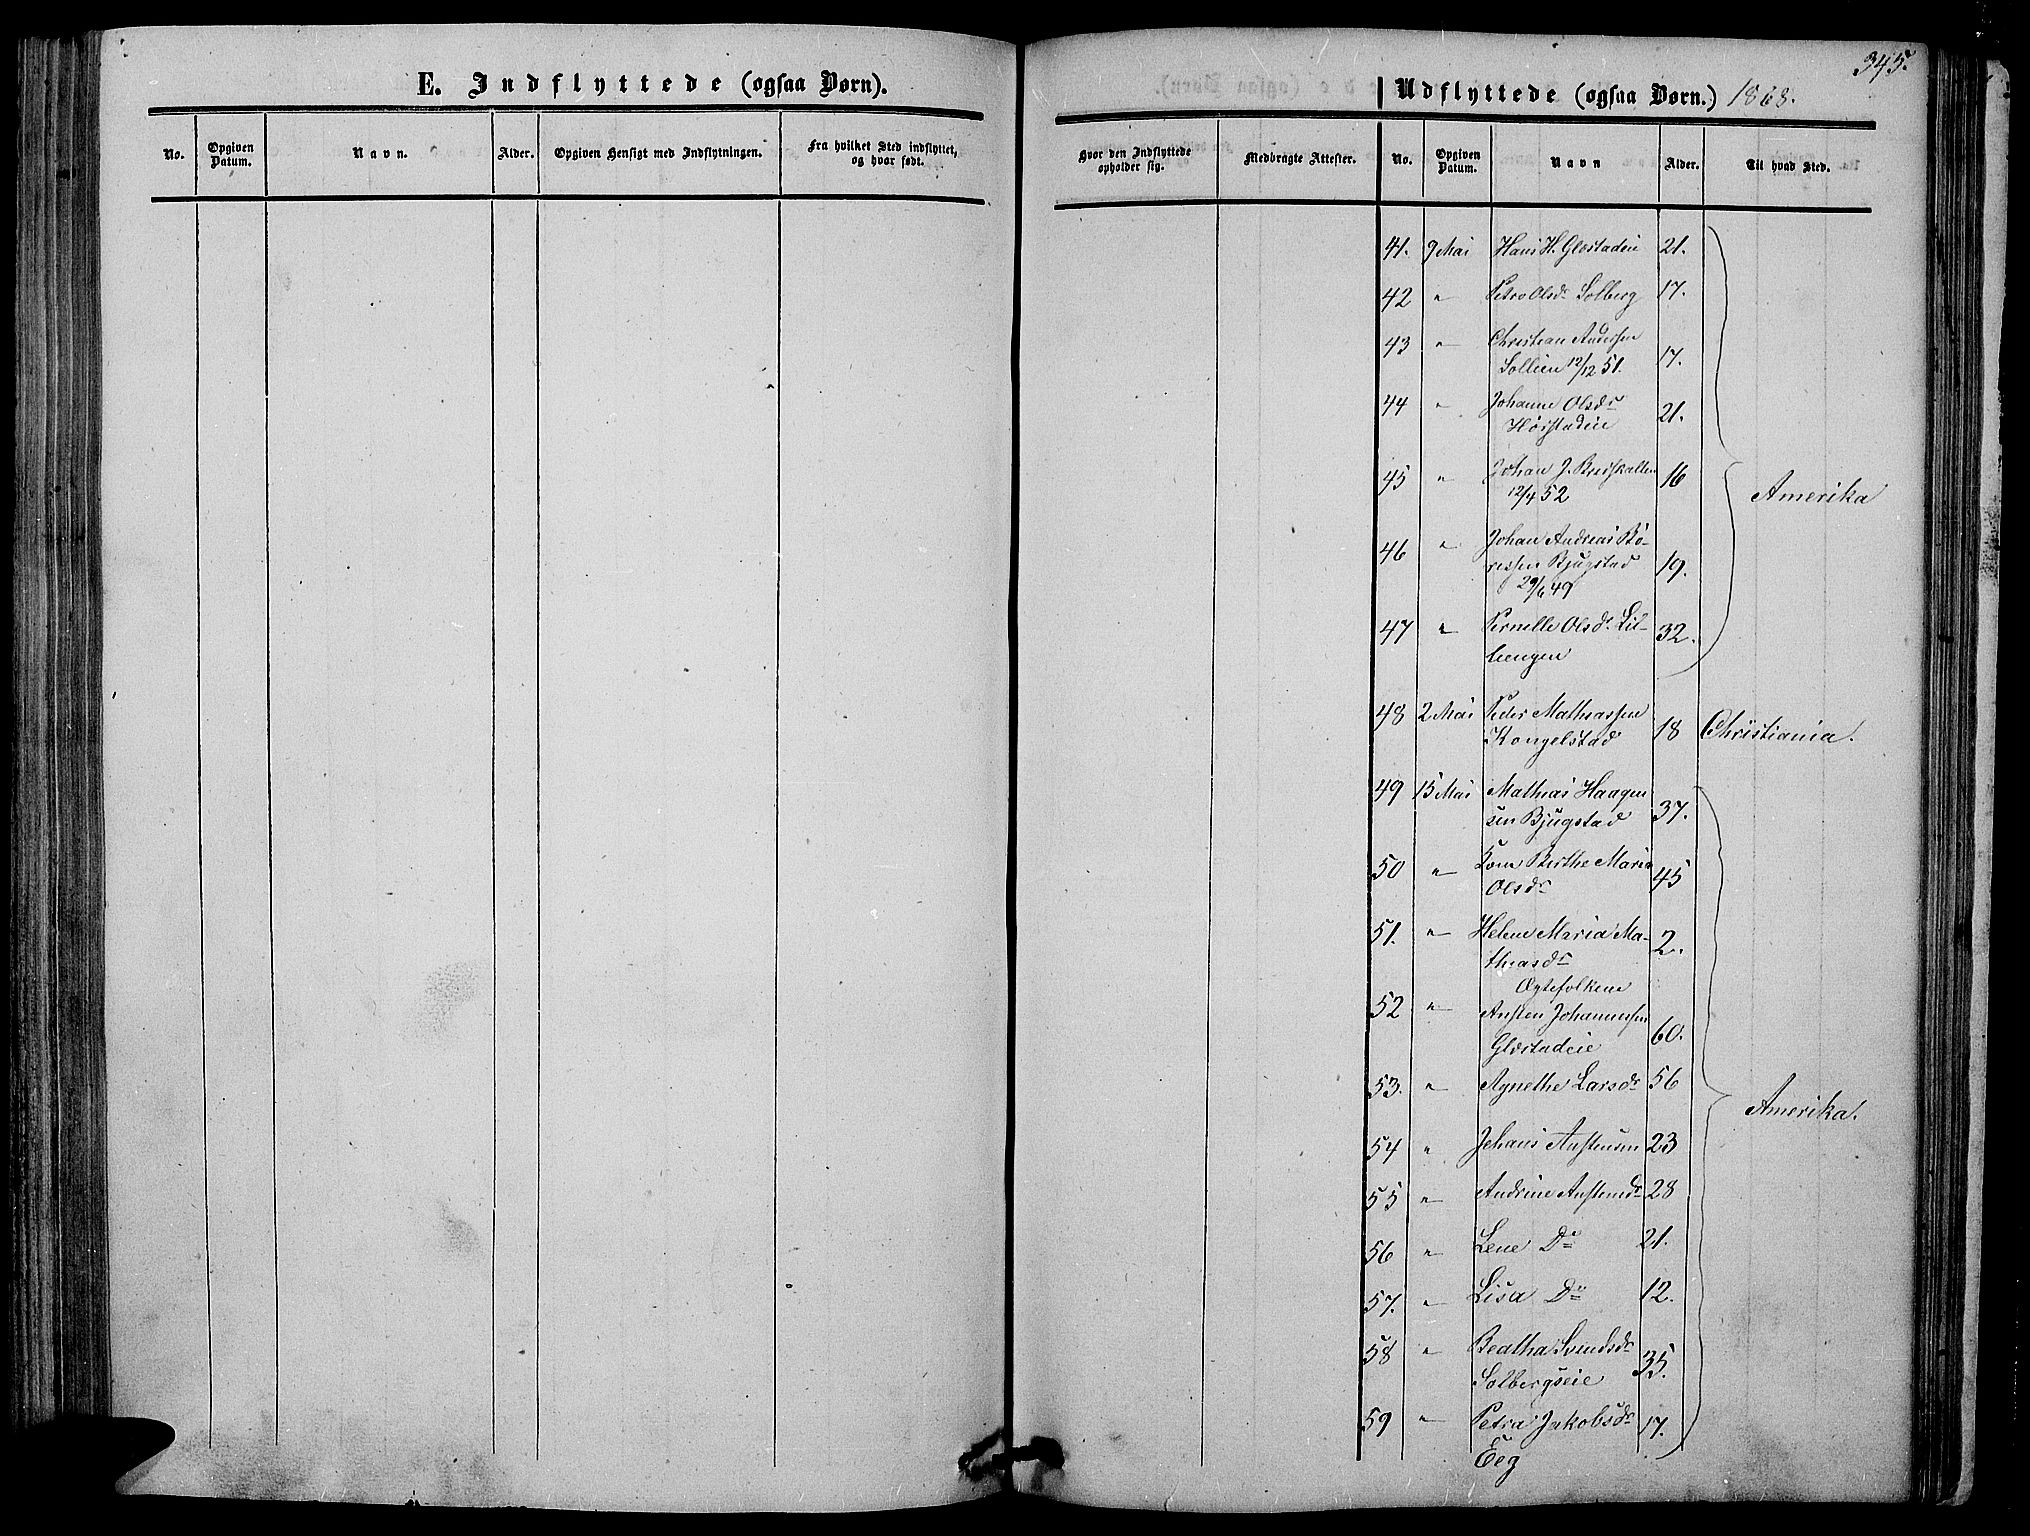 E. Indflyttede (ogsaa Børn).
No.
Opgiven Datum.
Navn.
Alder.
Opgiven Hensigt med Indflytningen.
Fra hvilket Sted indflyttet, og hvor født.
345.
Udflyttede (ogsaa Børn.) 1868.
Hvor den Indflyttede opholder sig.
Medbragte Attester.
No.
Opgiven Datum.
Navn
Alder.
Til hvad Sted.
41. 9 Mai Hans H. Gløstadeie 21.
42 " Petra Olsdr Solberg 17.
43 " Christian Andersen
Sollien 12/12 51. 17.
44 " Johanne Olsdr
Hørstadeie 21.
45 " Johan J. Breiskallen 16
12/4 52
Amerika
46 " Johan Andreas Bø-
ressen Bjugstad 19.
29/6 49
47 " Pernelle Olsdr Lil-
leengen 32.
48 2 Mai Peder Mathiassen
Kongelstad 18 Christiania.
49 15 Mai Mathias Haagen
sen Bjugstad 37.
50 " Kone Berthe Maria
Olsdr 45
51. " Helene Maria Ma-
thiasdr 2.
Ægtefolkene
52 " Austen Johannessen
Gløstadeie 60.
53. " Agnethe Larsdr 56
Amerika.
54 " Johans Austensen 23
55 " Andrine Austensdr 28
56 " Lene Do 21.
57. " Lisa Do 12.
58 " Beatha Svendsdr
Solbergseie 35.
59 " Petra Jakobsdr 17.
Eeg